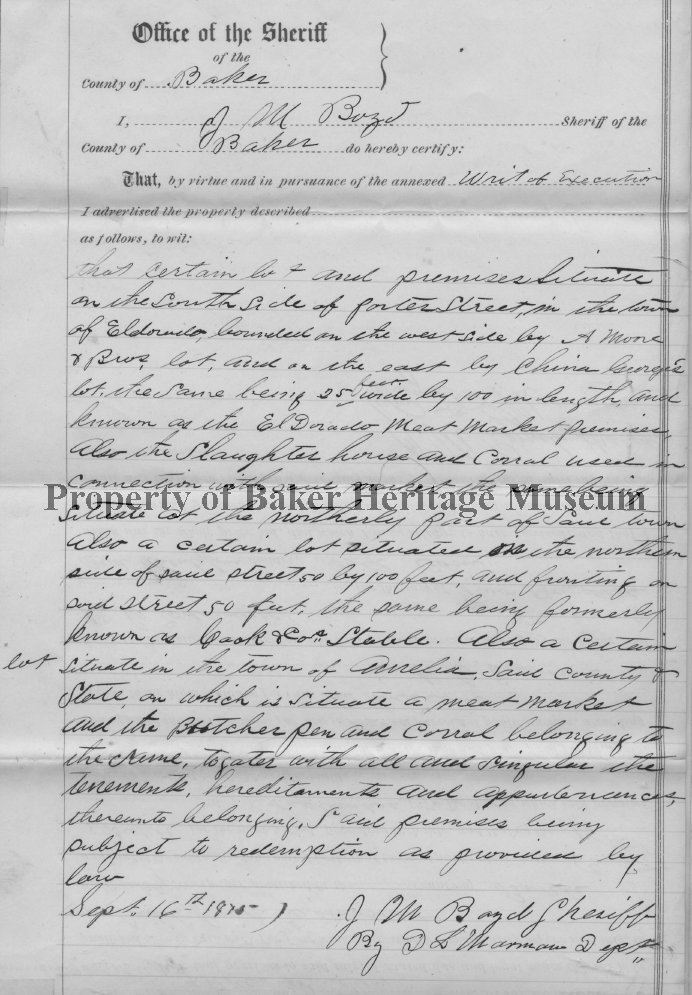 Office of the Sheriff
of the
County of Baker
I, J M Boyd Sheriff of the
County of Baker do hereby certify:
That, by virtue and in pursuance of the annexed Writ of Execution
I advertised the property described
as follows, to wit:
that certain lot and premises Situate
on the South Side of porter Street, in the town
of Eldorado, bounded on the west side by A Moore
& Bros, lot, and on the east by China George's
lot, the Same being 25 feet wide by 100 in length, and
known as the El Dorado Meat Market premises,
Also the Slaughter house and Corral used in
connection with said market the same being
Property of Baker Heritage Museum
Situate at the northerly part of Said town
Also a certain lot situated in the northern
side of said street 50 by 100 feet, and fronting on
said street 50 feet, the same being formerly
known as Cook & Cos Stable. Also a Certain
lot Situate in the town of Amelia, Said County &
State, on which is Situate a meat market
and the Butcher pen and Corral belonging to
the same, togater with all and Singular the
tenements, hereditaments and appurtenances,
thereunto belonging, Said premises being
subject to redemption as provided by
law
Sept. 16th 1875
J M Boyd Sheriff
By D L Dept